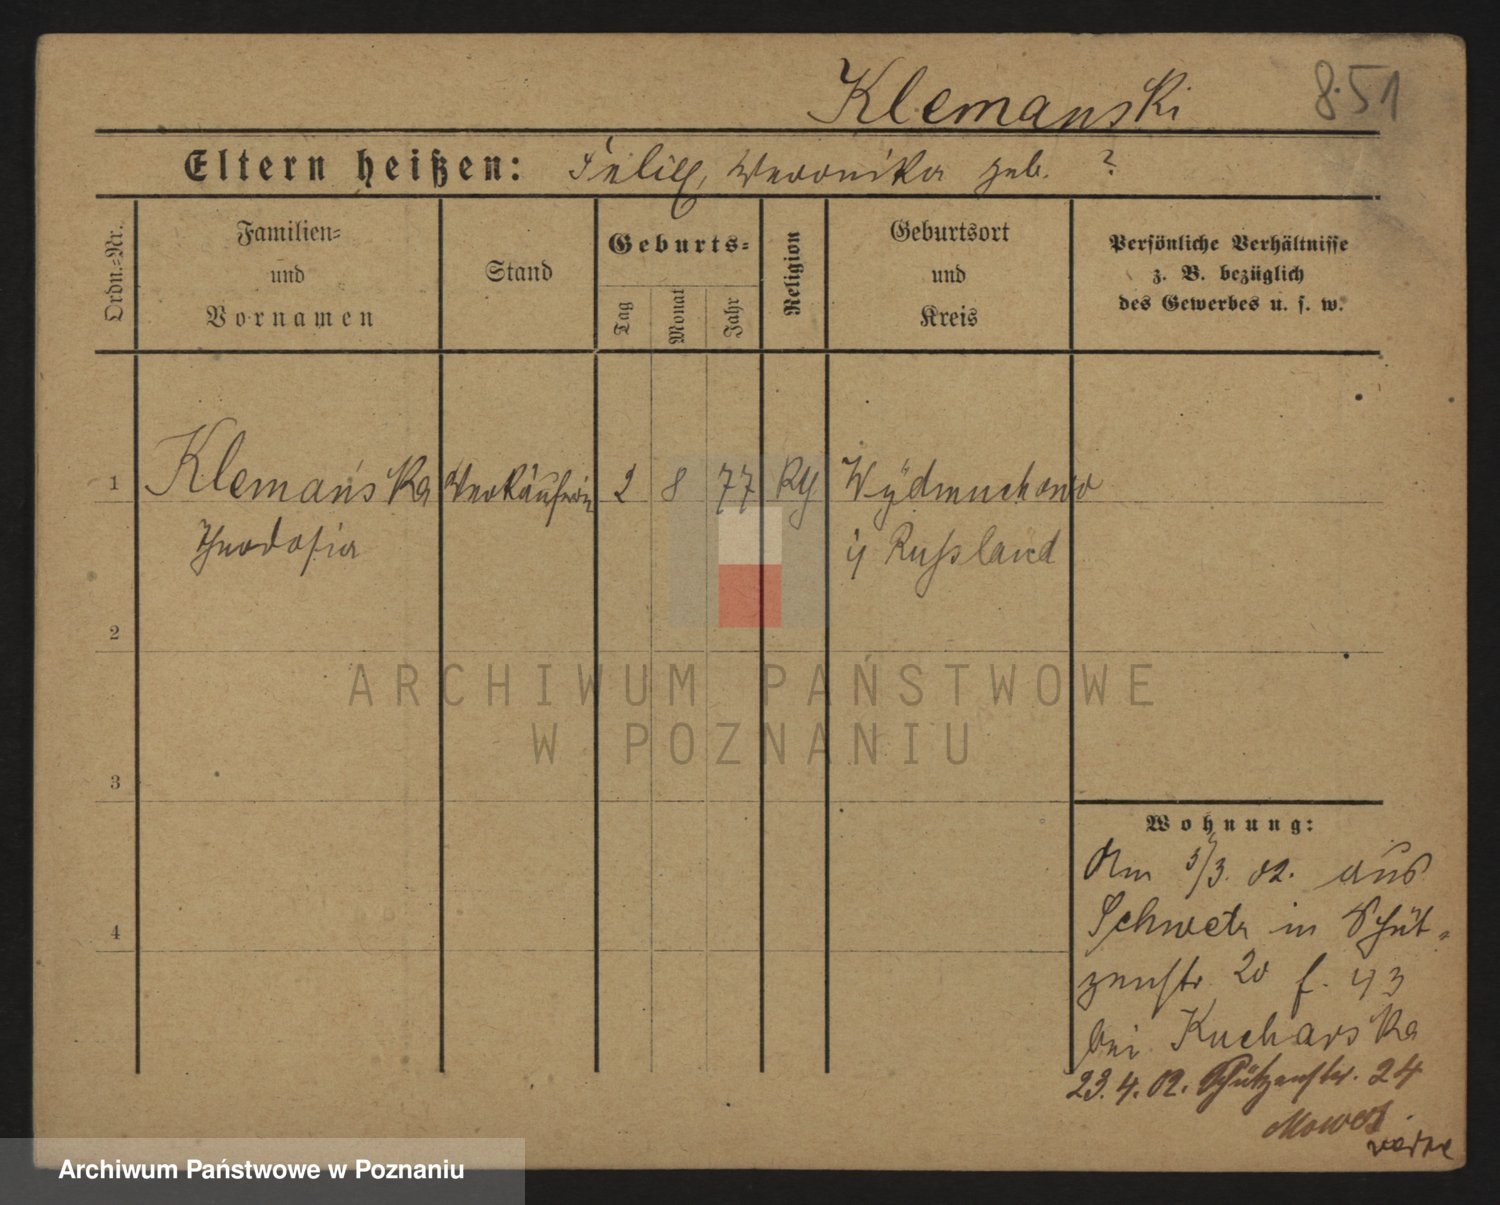 Klemanski
8.51
Eltern heißen: Felix, Veronika geb. ?
Ordn.=Nr.
Familien=
und
Vornamen
Stand
Geburts=
Tag
Monat
Jahr
Religion
Geburtsort
und
Kreis
Persönliche Verhältnisse
z. B. bezüglich
des Gewerbes u. s. w.
1
Klemańska Verkäuferin 2 8 77 Wydmuchowo
Theodosia
Russland
2
3
4
ARCHIWUM PAŃSTWOWE
W POZNANIU
Wohnung:
Am 5/3. 02. aus
Schwetz in Schüt=
zenstr. 20 f. 43
bei Kucharska
23.4.02. Schützenstr. 24
Archiwum Państwowe w Poznaniu